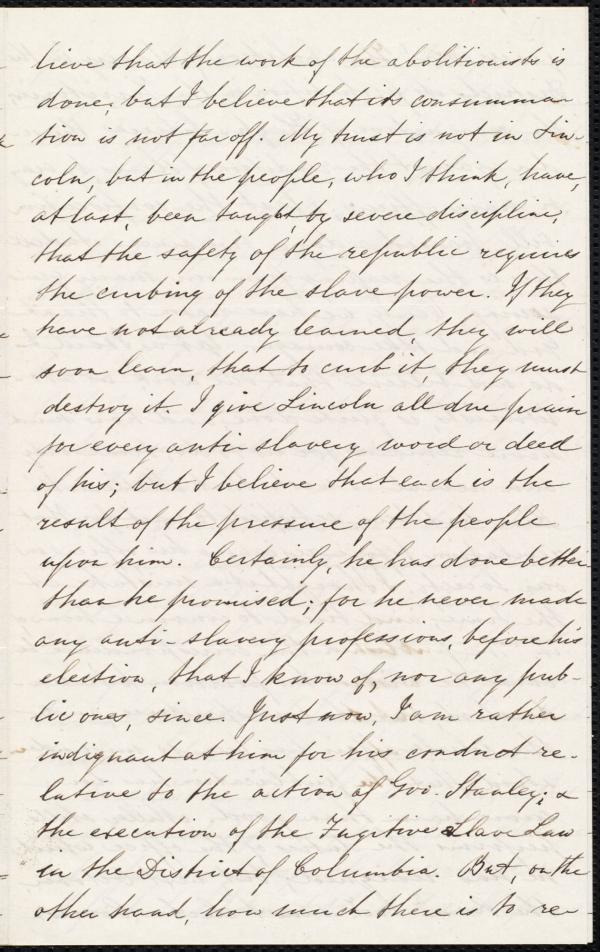 lieve that the work of the abolitionists is
done; but I believe that its consumma-
tion is not far off. My trust is not in Lin-
coln, but in the people, who I think, have,
at last, been taught, by severe discipline,
that the safety of the republic requires
the curbing of the slave power. If they
have not already learned, they will
soon learn, that to curb it, they must
destroy it. I give Lincoln all due praise
for every anti-slavery word or deed
of his; but I believe that each is the
result of the pressure of the people
upon him. Certainly, he has done better
than he promised; for he never made
any anti-slavery professions, before his
election, that I know of, nor any pub-
lic ones, since. Just now, I am rather
indignant at him for his conduct re-
lative to the action of Gov. Stanley; &
the execution of the Fugitive Slave Law
in the District of Columbia. But, on the
other hand, how much there is to re-